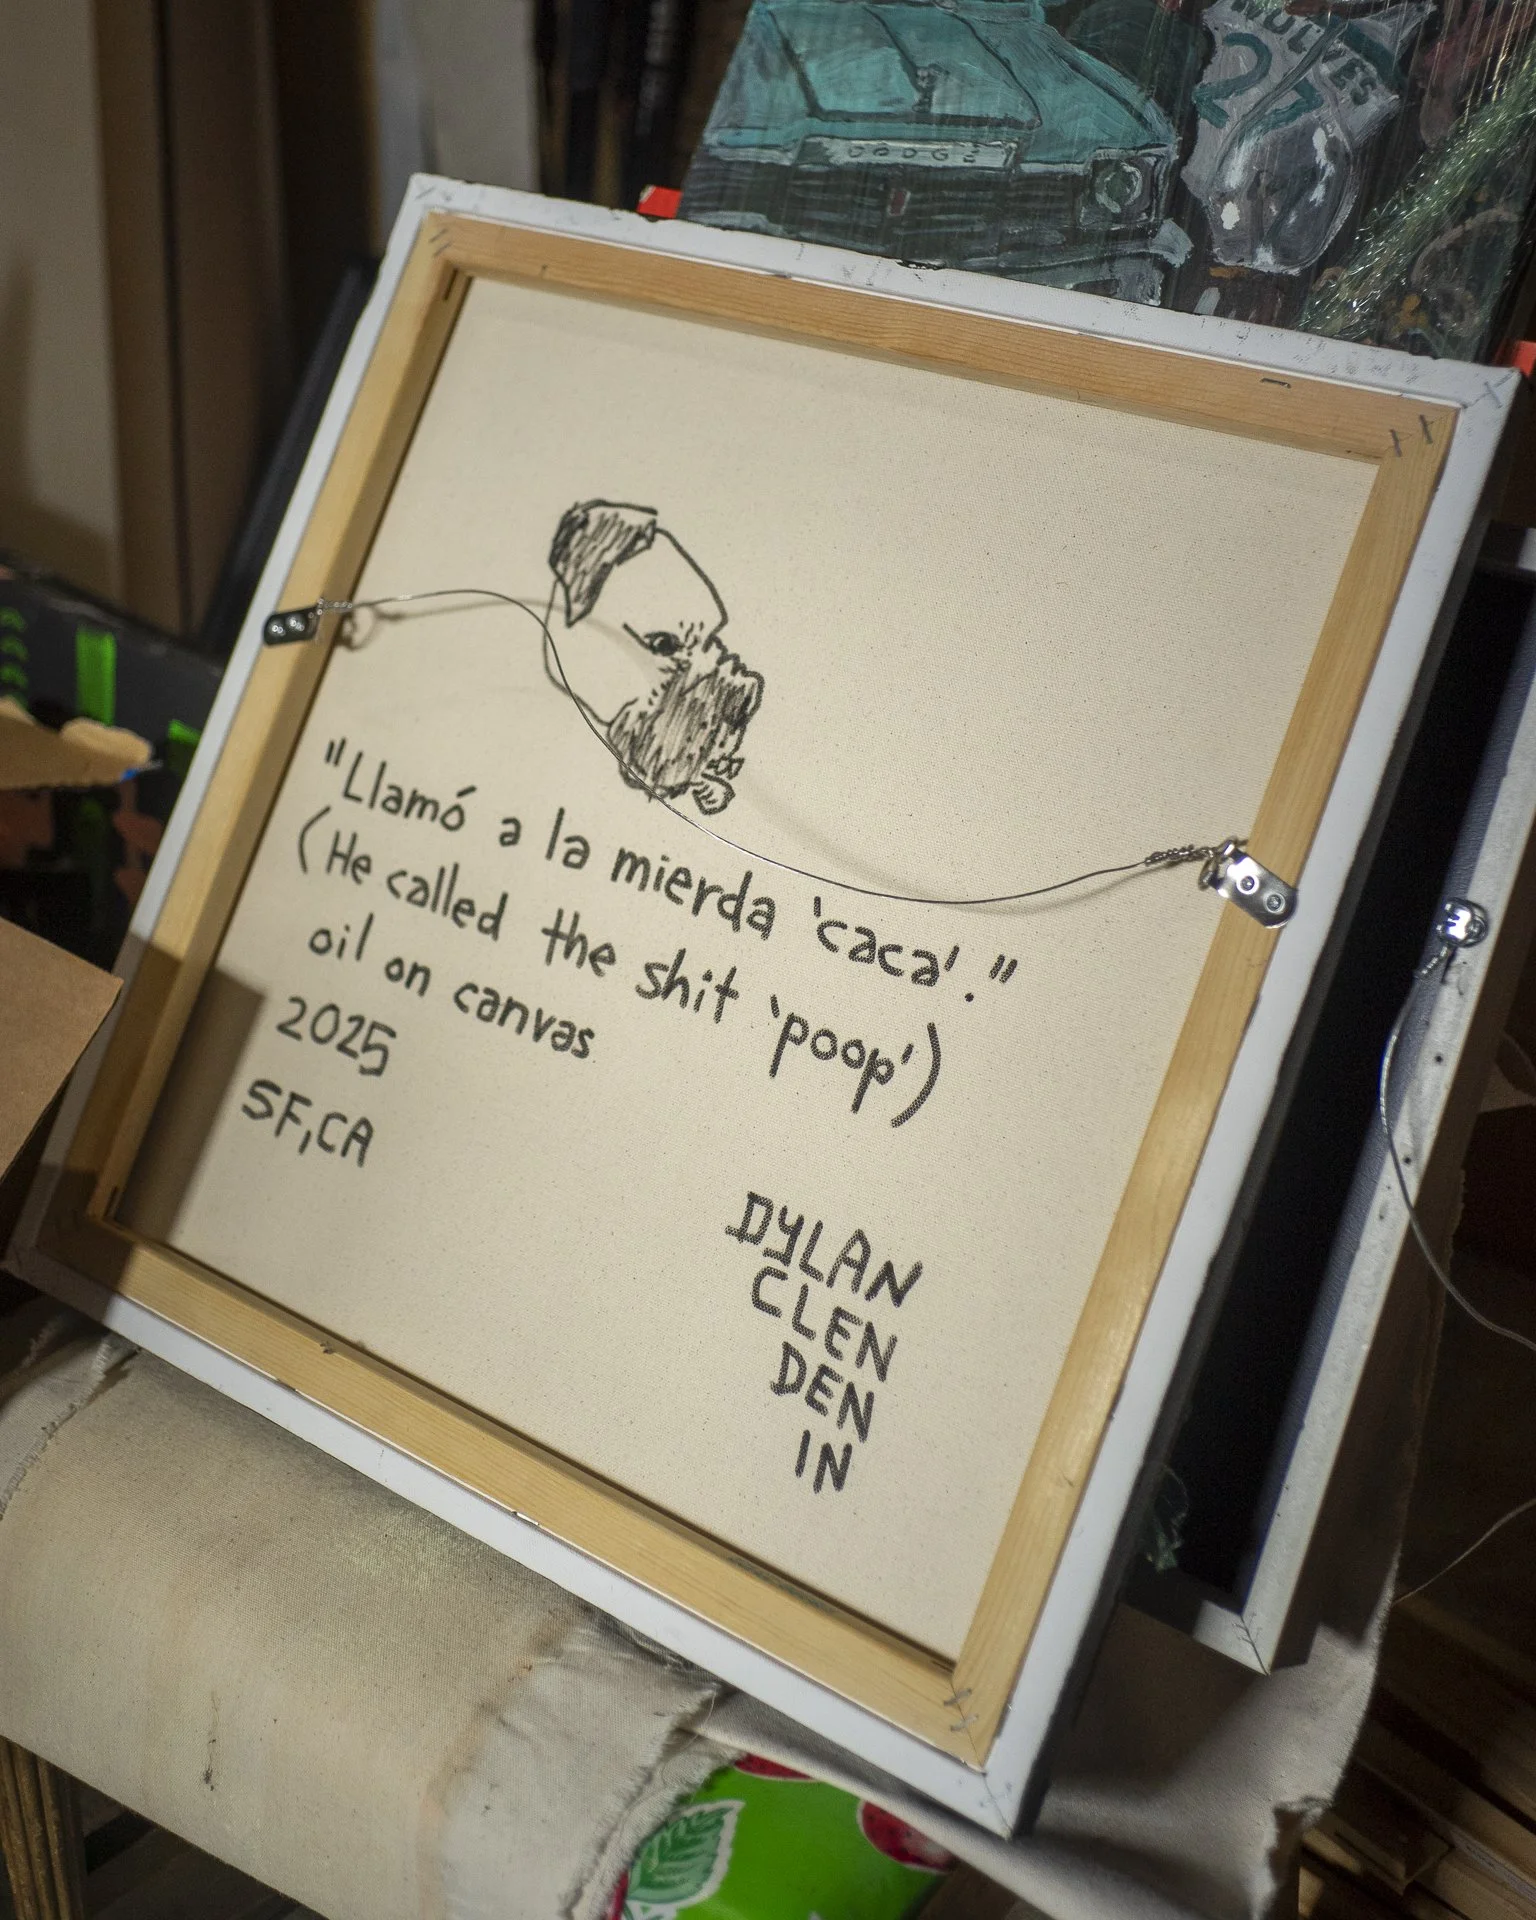 DODGE
27
"Llamó a la mierda 'caca'."
(He called the shit 'poop')
oil on canvas
2025
SF, CA
DYLAN
CLEN
DEN
IN